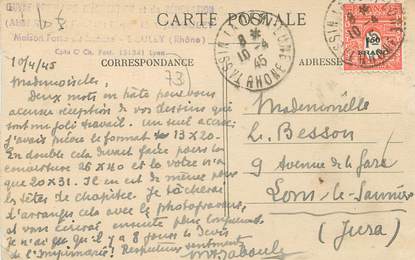 CARTE POSTALE
Maison Fort
ULLY (Rhône)
Cpte C/ Ch. Post. Lyon
CORRESPONDANCE
ADRESSE
TASSIN LA
RHONE
8 *
10 -4
45
10/4/45
73
Mademoiselle,
Deux mots en hâte pour vous
accuser réception de vos dessins qui
sont un joli travail. un seul accroc:
j'avais prévu le format 13 x 20.
En double cela devait faire pour les
couverture 26 x 20 et la votre n'a
que 20 x 31. Il en est de même pour
les têtes de chapitre. Je tâcherai
d'arranger cela avec le photograveur,
et vous écrirai ensuite plus longuement.
Je n'ai que il y a 8 jours le devis
de l'Imprimerie! Respectueux sentiments
Mademoiselle
Le Besson
9 Avenue de la Gare
Lons-le-Saunier
(Jura)